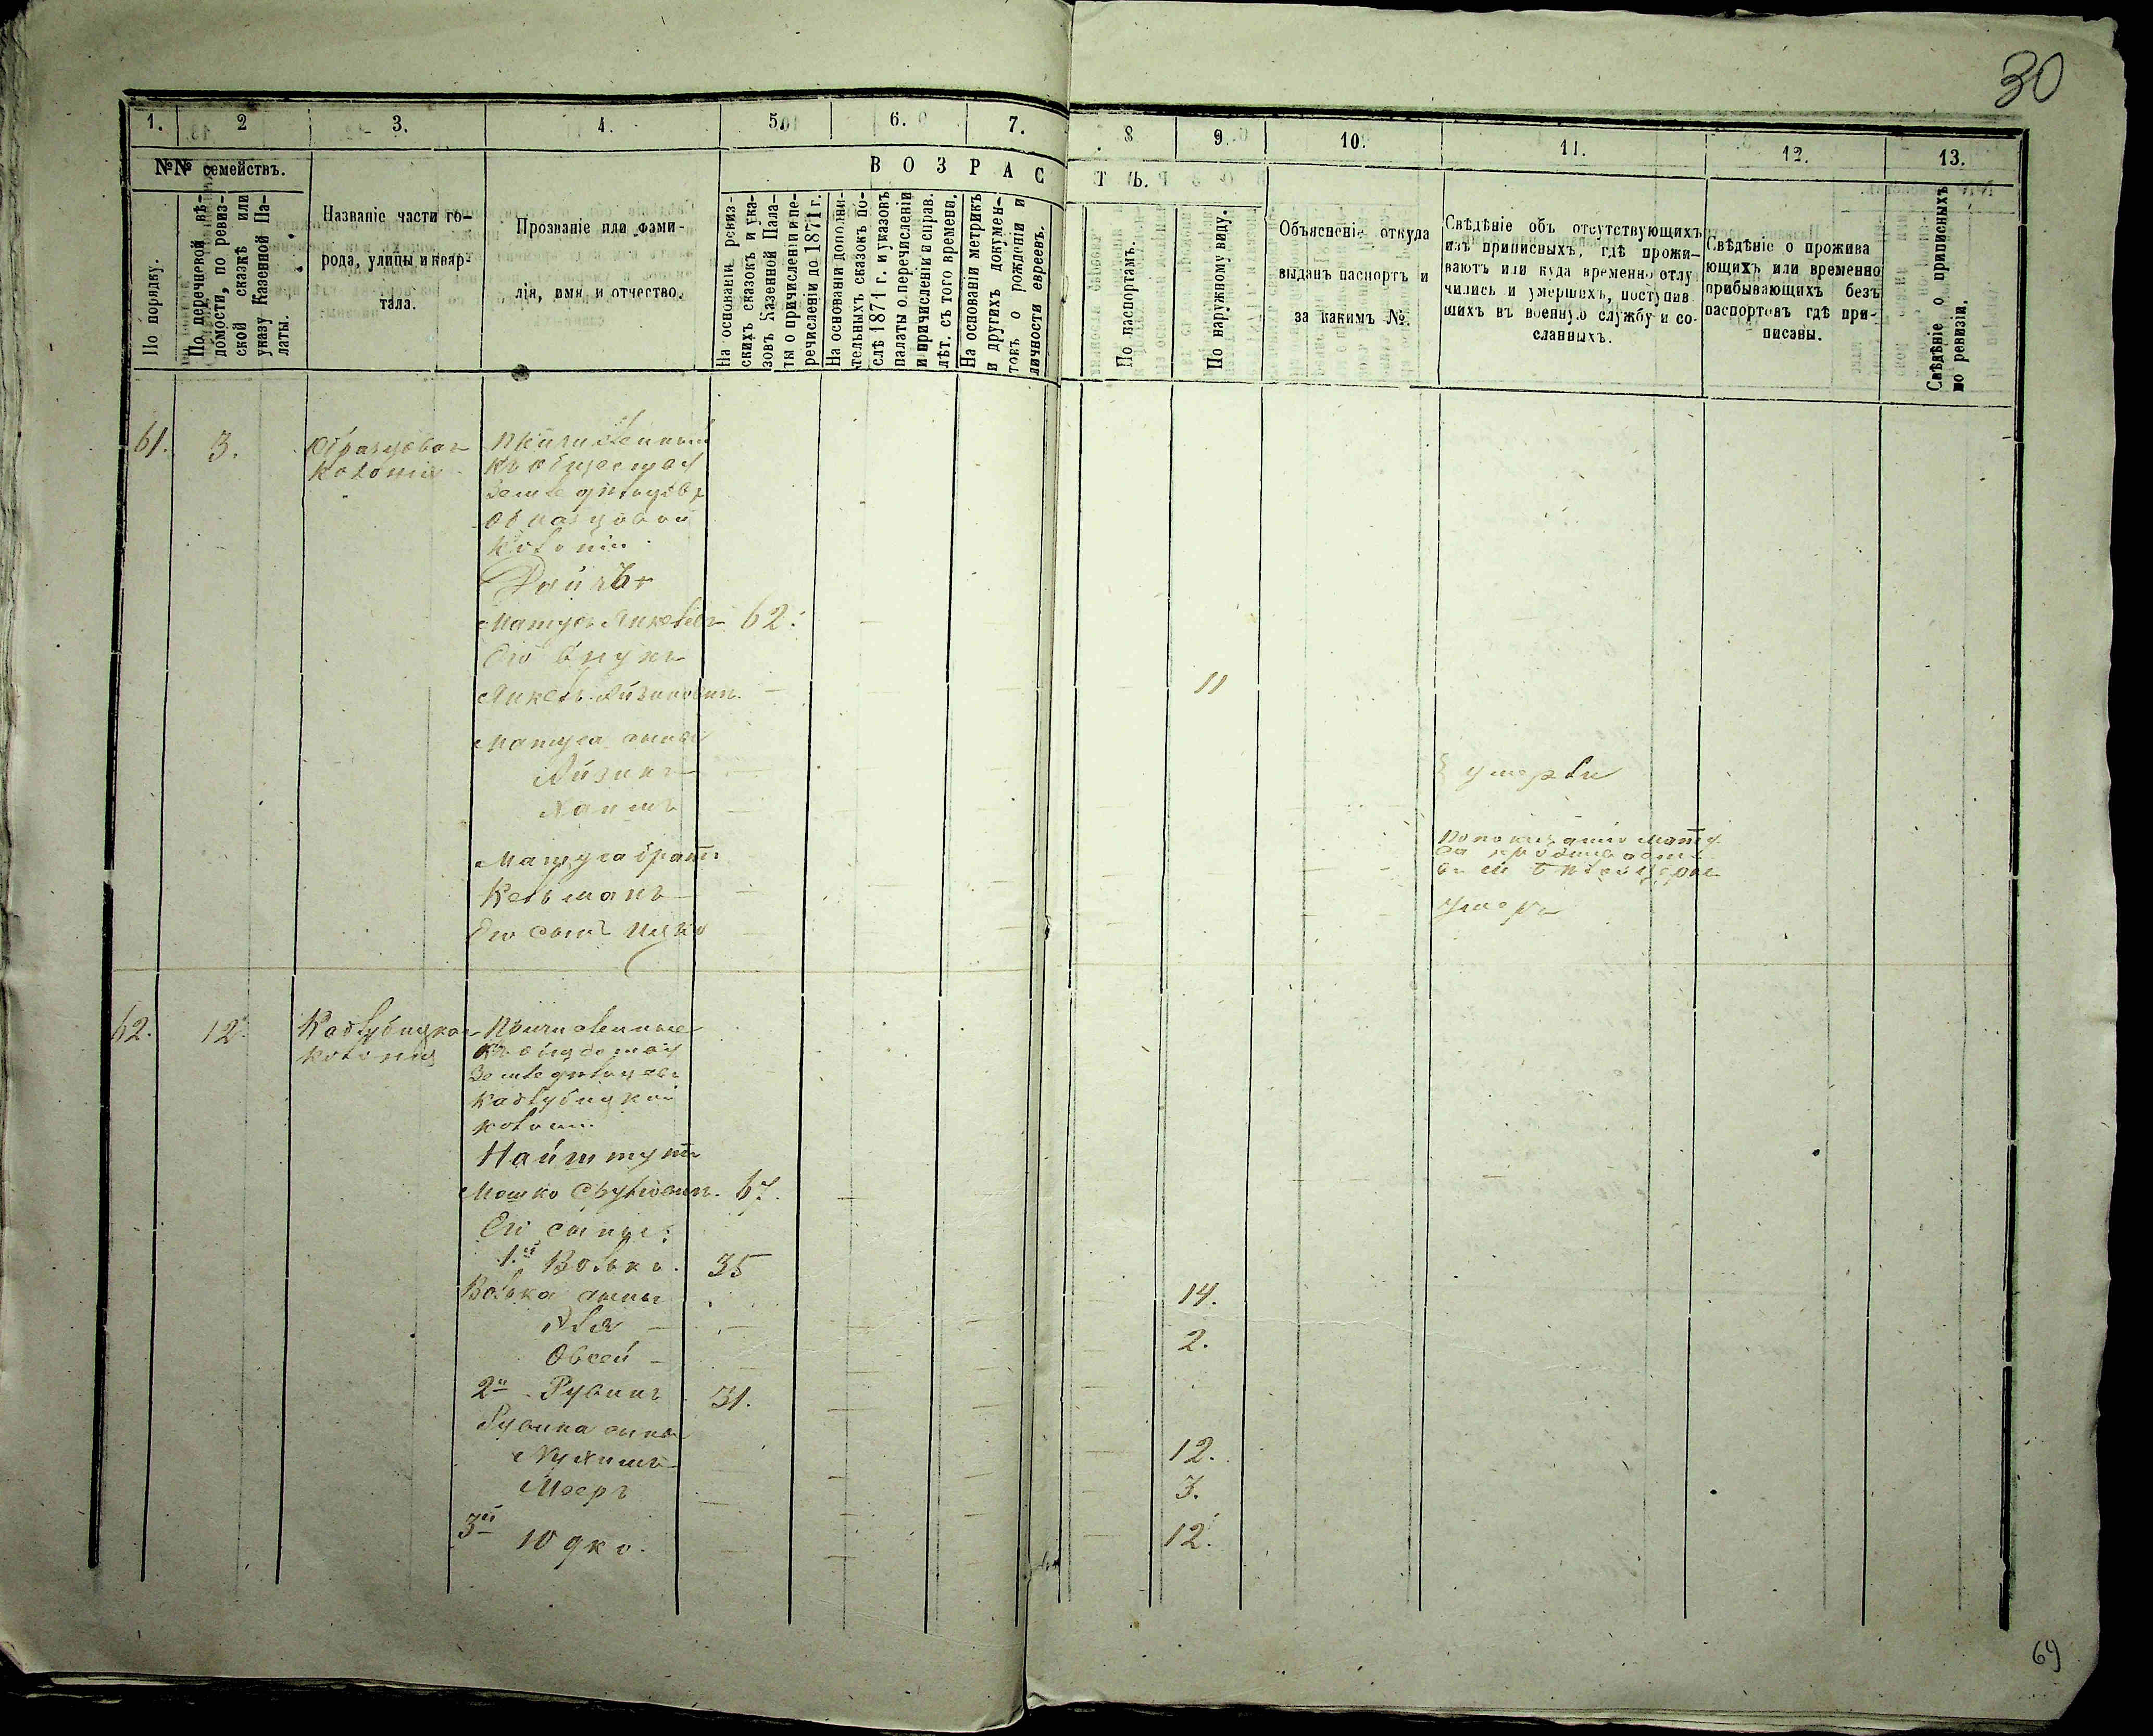 30
1. 2 3. 4. 5. 6. 7. 8 9. 10. 11. 12. 13.
№№ семействъ.
По порядку.
По перечневой вѣ-
домости, по ревиз-
ской сказкѣ или
указу Казенной Па-
латы.
Названіе части го-
рода, улицы и квар-
тала.
Прозваніе или фами-
лія, имя и отчество.
ВОЗРАСТЪ.
На основаніи ревиз-
скихъ сказокъ и ука-
зовъ Казенной Пала-
ты о причисленіи и пе-
речисленіи до 1871 г.
На основаніи дополни-
тельныхъ сказокъ по-
слѣ 1871 г. и указовъ
палаты о перечисленіи
и причисленіи и справ.
лѣт. съ того времени.
На основаніи метрикъ
и другихъ докумен-
товъ о рожденіи и
личности евреевъ.
По паспортамъ.
По наружному виду.
Объясненіе откуда
выданъ паспортъ и
за какимъ №.
Свѣдѣніе объ отсутствующихъ
изъ приписныхъ, гдѣ прожи-
ваютъ или куда временно отлу
чились и умершихъ, поступив
шихъ въ военную службу и со-
сланныхъ.
Свѣдѣніе о прожива
ющихъ или временно
прибывающихъ безъ
паспортовъ гдѣ при-
писаны.
Свѣдѣніе о приписныхъ
по ревизіи.
61. 3. Образцовая
колонія
Причисленный
къ обществу
земледѣльцовъ
Образцовой
колоніи
Матусъ Янкелев 62.
Его внукъ
Янкель Айзиковичъ 11
Матуса сыны
Айзикъ умерли
Хаимъ
Матуса братъ
Кельманъ
Его сынъ Ицко умеръ
62. 12. Кадлубицкая
колонія
Причисленные
къ обществу
земледѣльцевъ
Кадлубицкой
колоніи
Найштутъ
Мошко Срулювичъ 67.
Его сыны:
1й Волько. 35
Волька сыны
14.
Овсей 2.
2й Рувинъ 31.
Рувина сыны
Нухимъ 12.
Мееръ 3.
3й Юдко. 12.
69